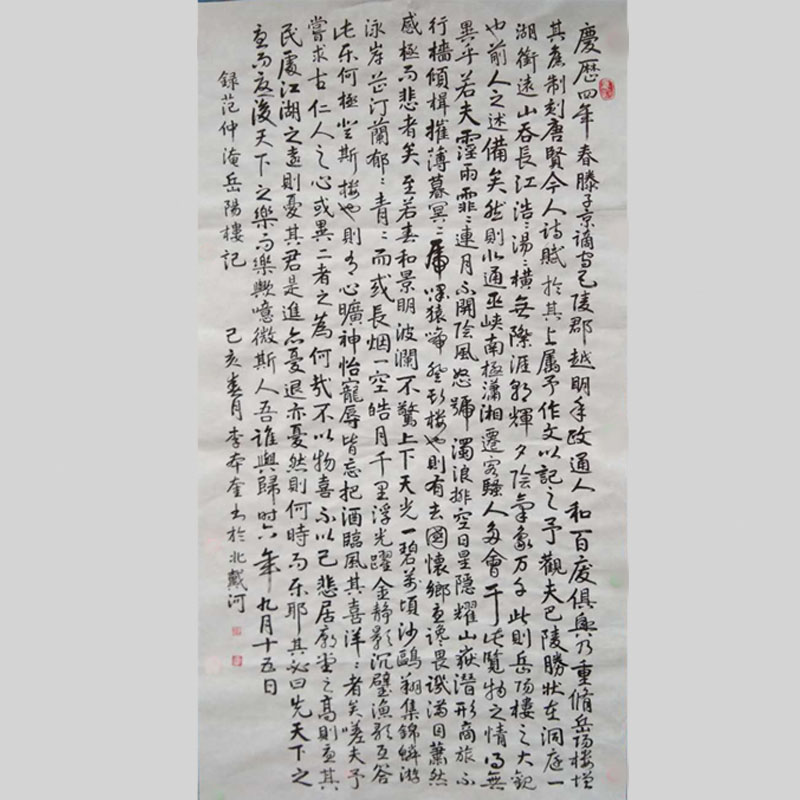 慶歷四年春滕子京謫守巴陵郡越明年政通人和百廢俱興乃重脩岳陽樓增
其舊制刻唐賢今人詩賦於其上属予作文以記之予觀夫巴陵勝狀在洞庭一
湖銜遠山吞長江浩〻湯〻橫無際涯朝輝夕陰氣象万千此則岳陽樓之大觀
也前人之述備矣然則北通巫峽南極瀟湘遷客騷人多會于此覽物之情得無
異乎若夫霪雨霏〻連月不開陰風怒號濁浪排空日星隱耀山嶽潛形商旅不
行檣傾楫摧薄暮冥〻虎嘯猿啼登斯樓也則有去國懷鄉憂讒畏譏滿目蕭然
感極而悲者矣至若春和景明波瀾不驚上下天光一碧萬頃沙鷗翔集錦鱗游
泳岸芷汀蘭郁〻青〻而或長烟一空皓月千里浮光躍金靜影沉璧漁歌互答
此乐何極登斯樓也則有心曠神怡寵辱皆忘把酒臨風其喜洋〻者矣嗟夫予
嘗求古仁人之心或異二者之為何哉不以物喜不以己悲居廟堂之高則憂其
民處江湖之遠則憂其君是進亦憂退亦憂然則何時而乐耶其必曰先天下之
憂而憂後天下之樂而樂歟噫微斯人吾誰與歸时六年九月十五日
録范仲淹岳陽樓記
己亥春月李本奎书於北戴河